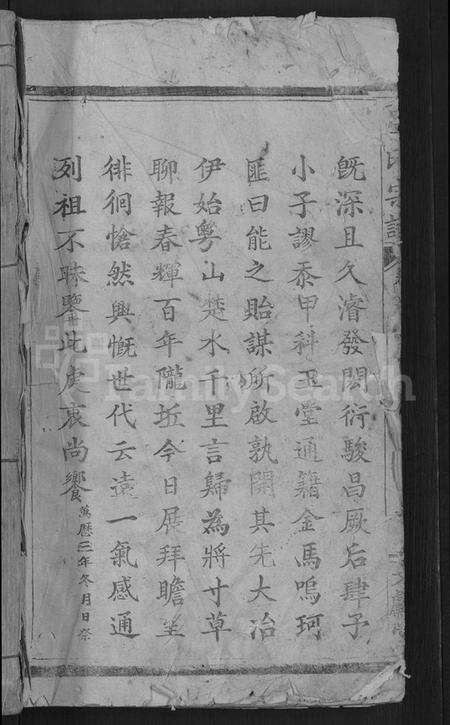 既深且久濬發閎衍駿昌厥后肆予
小子謬忝甲科玉堂通籍金馬鳴珂
匪曰能之貽謀所啟孰開其先大冶
伊始粤山楚水千里言歸為將寸草
聊報春輝百年隴坵今日展拜瞻坐
徘徊愴然興慨世代云遠一氣感通
列祖不昧鑒此虔衷尚饗萬曆三年冬月日祭
氏宗譜
FamilySearch